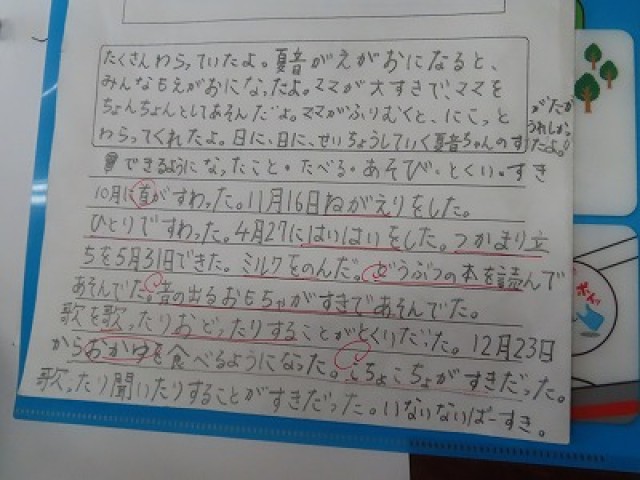 たくさんわらっていたよ。夏音がえがおになると、
みんなもえがおになったよ。ママが大すきで、ママを
ちょんちょんとしてあそんだよ。ママがふりむくと、にこっと
わらってくれたよ。日に、日に、せいちょうしていく夏音ちゃんのすがたが
うれしかったよ。
できるようになったこと・たべる・あそび・とくい・すき
10月に首がすわった。11月16日ねがえりをした。
ひとりですわった。4月27にはいはいをした。つかまり立
ちを5月31日できた。ミルクをのんだ。どうぶつの本を読んで
あそんでた。音の出るおもちゃがすきであそんでた。
歌を歌ったりおどったりすることがとくいだった。12月23日
からおかゆを食べるようになった。こちょこちょがすきだった。
歌ったり聞いたりすることがすきだった。いないないばーすき。